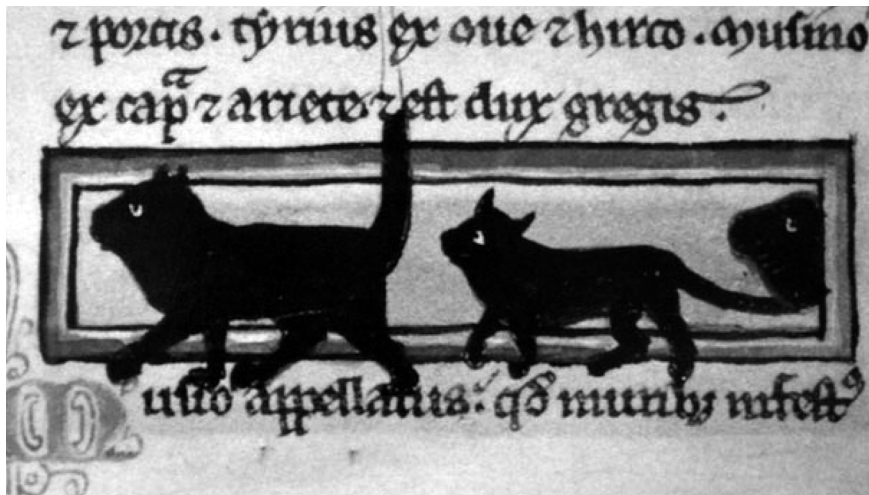 ⁊ porcis. tyrius ex oue ⁊ hirco. musino
ex cap̃ ⁊ ariete ⁊ est dux gregis.
Musio appellatus: qđ muribꝫ infestꝰ